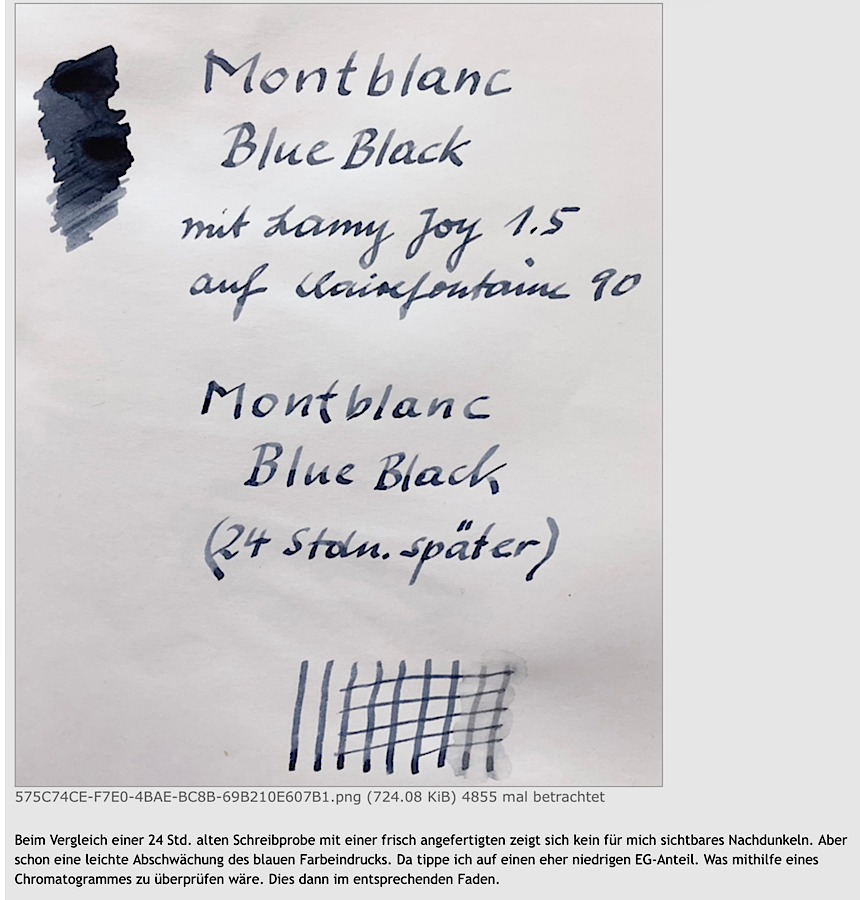 Montblanc
Blue Black
mit Lamy Joy 1.5
auf Clairefontaine 90
Montblanc
Blue Black
(24 Stdn. später)
575C74CE-F7E0-4BAE-BC8B-69B210E607B1.png (724.08 KiB) 4855 mal betrachtet
Beim Vergleich einer 24 Std. alten Schreibprobe mit einer frisch angefertigten zeigt sich kein für mich sichtbares Nachdunkeln. Aber
schon eine leichte Abschwächung des blauen Farbeindrucks. Da tippe ich auf einen eher niedrigen EG-Anteil. Was mithilfe eines
Chromatogrammes zu überprüfen wäre. Dies dann im entsprechenden Faden.